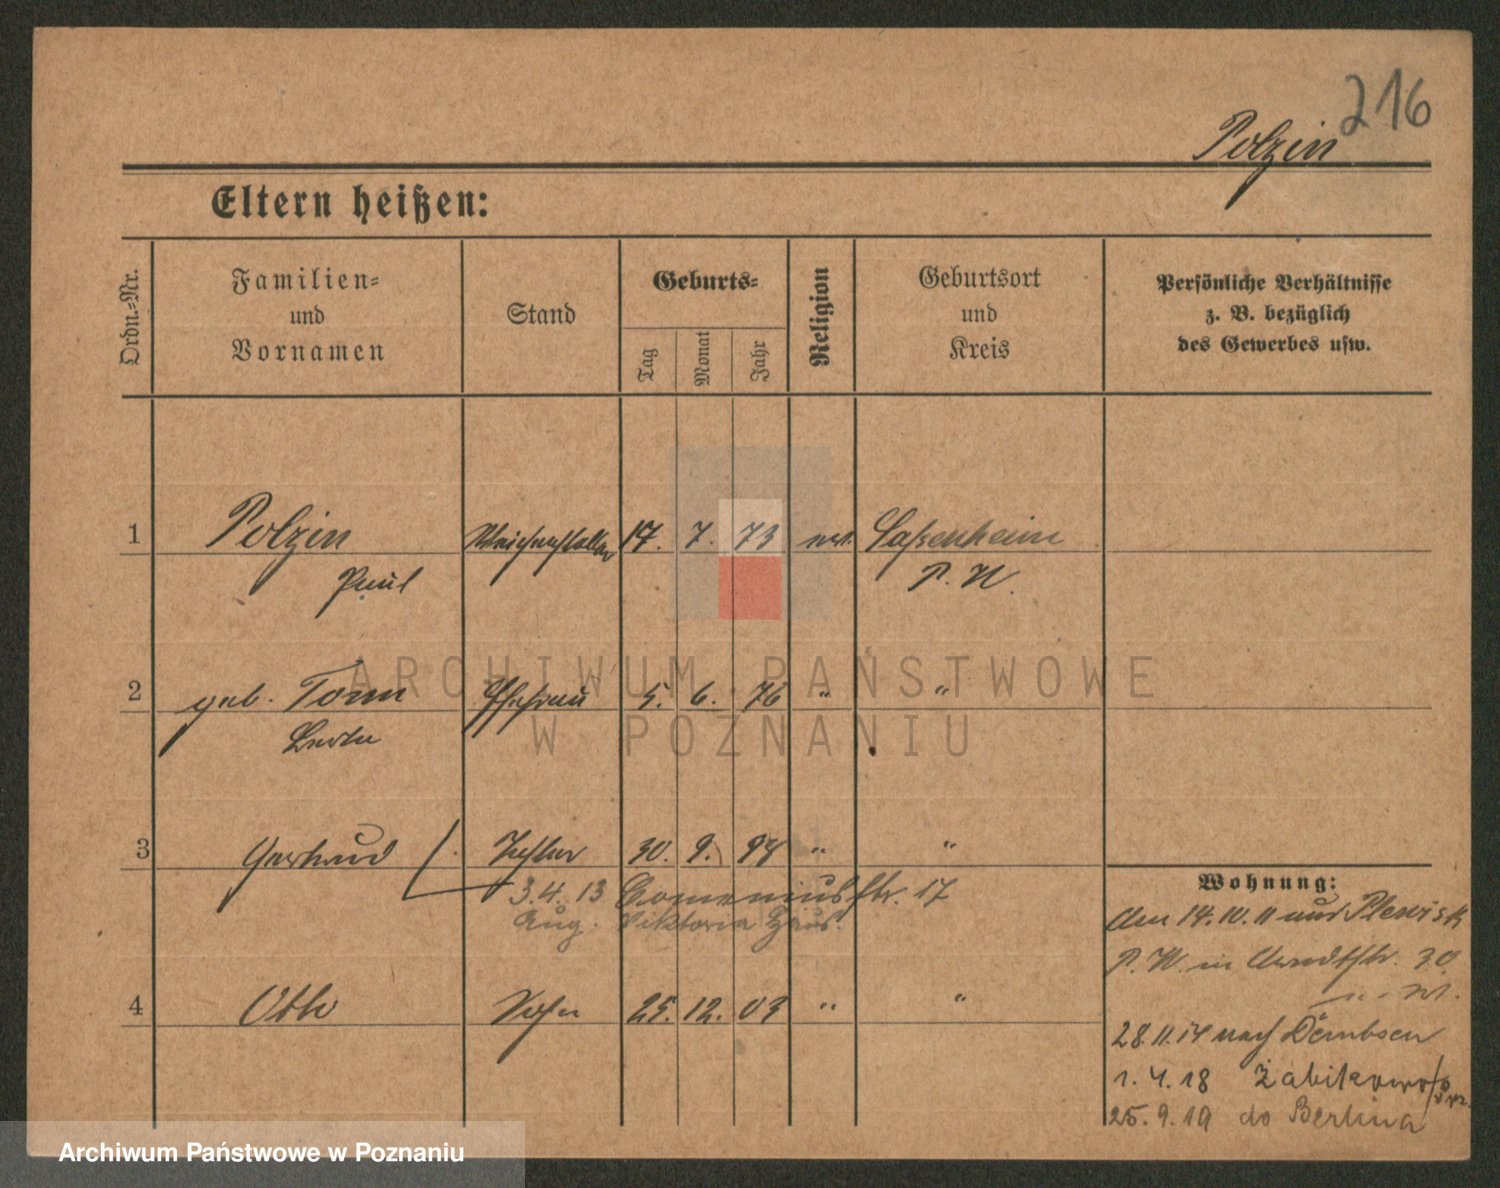 216
Polzin
Eltern heißen:
Ordn.-Nr.
Familien-
und
Vornamen
Stand
Geburts-
Tag
Monat
Jahr
Religion
Geburtsort
und
Kreis
Persönliche Verhältnisse
z. B. bezüglich
des Gewerbes usw.
1 Polzin Weichensteller 17. 7. 73 ev. Sassenheim
Paul P. W.
2 geb. Tonn Ehefrau 5. 6. 76 " "
Berta
3 Gerhard 30. 9. 98 " "
3.4.13 Comeniusstr. 17
Aug. Viktoria Haus.
4 Otto Sohn 25. 12. 03 " "
Wohnung:
Am 14.10.11 aus Plewisk
P. W. in Arndtstr. 30
28.11.14 nach Dembsen
1.4.18 Żabikowo
25.9.19 do Berlina
ARCHIWUM PAŃSTWOWE
W POZNANIU
Archiwum Państwowe w Poznaniu